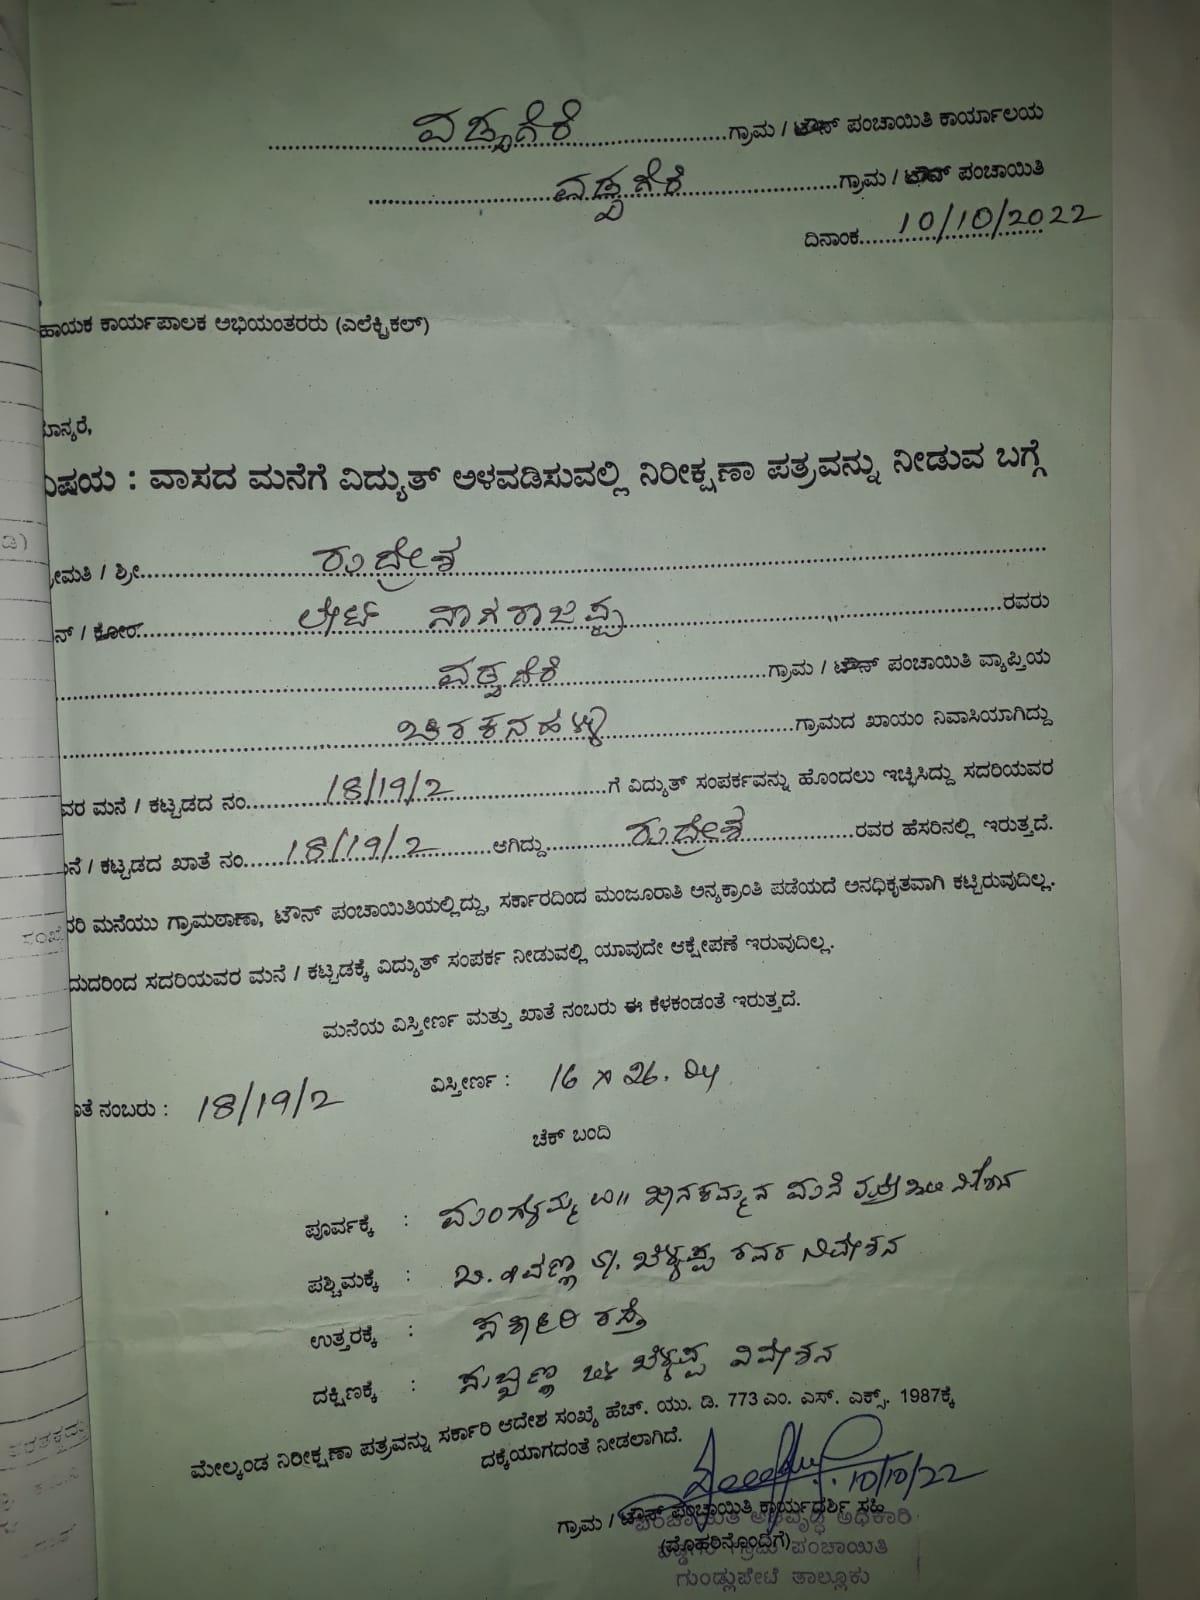 ವಡ್ಡಗೆರೆ ಗ್ರಾಮ / ಟೌನ್ ಪಂಚಾಯಿತಿ ಕಾರ್ಯಾಲಯ
ವಡ್ಡಗೆರೆ ಗ್ರಾಮ / ಟೌನ್ ಪಂಚಾಯಿತಿ
ದಿನಾಂಕ 10/10/2022
ಹಾಯಕ ಕಾರ್ಯಪಾಲಕ ಅಭಿಯಂತರರು (ಎಲೆಕ್ಟ್ರಿಕಲ್)
ಮಾನ್ಯರೆ,
ವಿಷಯ : ವಾಸದ ಮನೆಗೆ ವಿದ್ಯುತ್ ಅಳವಡಿಸುವಲ್ಲಿ ನಿರೀಕ್ಷಣಾ ಪತ್ರವನ್ನು ನೀಡುವ ಬಗ್ಗೆ
ಶ್ರೀಮತಿ / ಶ್ರೀ ರುದ್ರೇಶ
ನ್ / ಕೋರ ಲೇಟ್ ನಾಗರಾಜಪ್ಪ ರವರು
ವಡ್ಡಗೆರೆ ಗ್ರಾಮ / ಟೌನ್ ಪಂಚಾಯಿತಿ ವ್ಯಾಪ್ತಿಯ
ಚಿರಕನಹಳ್ಳಿ ಗ್ರಾಮದ ಖಾಯಂ ನಿವಾಸಿಯಾಗಿದ್ದು
ವರ ಮನೆ / ಕಟ್ಟಡದ ನಂ 18/19/2 ಗೆ ವಿದ್ಯುತ್ ಸಂಪರ್ಕವನ್ನು ಹೊಂದಲು ಇಚ್ಛಿಸಿದ್ದು ಸದರಿಯವರ
ಮನೆ / ಕಟ್ಟಡದ ಖಾತೆ ನಂ 18/19/2 ಆಗಿದ್ದು ರುದ್ರೇಶ ರವರ ಹೆಸರಿನಲ್ಲಿ ಇರುತ್ತದೆ.
ದರಿ ಮನೆಯು ಗ್ರಾಮಠಾಣಾ, ಟೌನ್ ಪಂಚಾಯಿತಿಯಲ್ಲಿದ್ದು, ಸರ್ಕಾರದಿಂದ ಮಂಜೂರಾತಿ ಅನ್ಯಕ್ರಾಂತಿ ಪಡೆಯದೆ ಅನಧಿಕೃತವಾಗಿ ಕಟ್ಟಿರುವುದಿಲ್ಲ.
ದುದರಿಂದ ಸದರಿಯವರ ಮನೆ / ಕಟ್ಟಡಕ್ಕೆ ವಿದ್ಯುತ್ ಸಂಪರ್ಕ ನೀಡುವಲ್ಲಿ ಯಾವುದೇ ಆಕ್ಷೇಪಣೆ ಇರುವುದಿಲ್ಲ.
ಮನೆಯ ವಿಸ್ತೀರ್ಣ ಮತ್ತು ಖಾತೆ ನಂಬರು ಈ ಕೆಳಕಂಡಂತೆ ಇರುತ್ತದೆ.
ಖಾತೆ ನಂಬರು : 18/19/2 ವಿಸ್ತೀರ್ಣ : 16 X 26.
ಚೆಕ್ ಬಂದಿ
ಪೂರ್ವಕ್ಕೆ : ಮಂಗಳಮ್ಮ ಮನೆ
ಪಶ್ಚಿಮಕ್ಕೆ : ರವರ ನಿವೇಶನ
ಉತ್ತರಕ್ಕೆ : ಸರ್ಕಾರಿ ರಸ್ತೆ
ದಕ್ಷಿಣಕ್ಕೆ : ಸುಬ್ಬಣ್ಣ ನಿವೇಶನ
ಮೇಲ್ಕಂಡ ನಿರೀಕ್ಷಣಾ ಪತ್ರವನ್ನು ಸರ್ಕಾರಿ ಆದೇಶ ಸಂಖ್ಯೆ ಹೆಚ್. ಯು. ಡಿ. 773 ಎಂ. ಎಸ್. ಎಕ್ಸ್. 1987ಕ್ಕೆ
ದಕ್ಕೆಯಾಗದಂತೆ ನೀಡಲಾಗಿದೆ.
10/10/22
ಗ್ರಾಮ / ಟೌನ್ ಪಂಚಾಯಿತಿ ಕಾರ್ಯದರ್ಶಿ ಸಹಿ
ಪಂಚಾಯಿತಿ ಅಭಿವೃದ್ಧಿ ಅಧಿಕಾರಿ
(ಮೊಹರಿನೊಂದಿಗೆ)
ಗ್ರಾಮ ಪಂಚಾಯಿತಿ
ಗುಂಡ್ಲುಪೇಟೆ ತಾಲ್ಲೂಕು